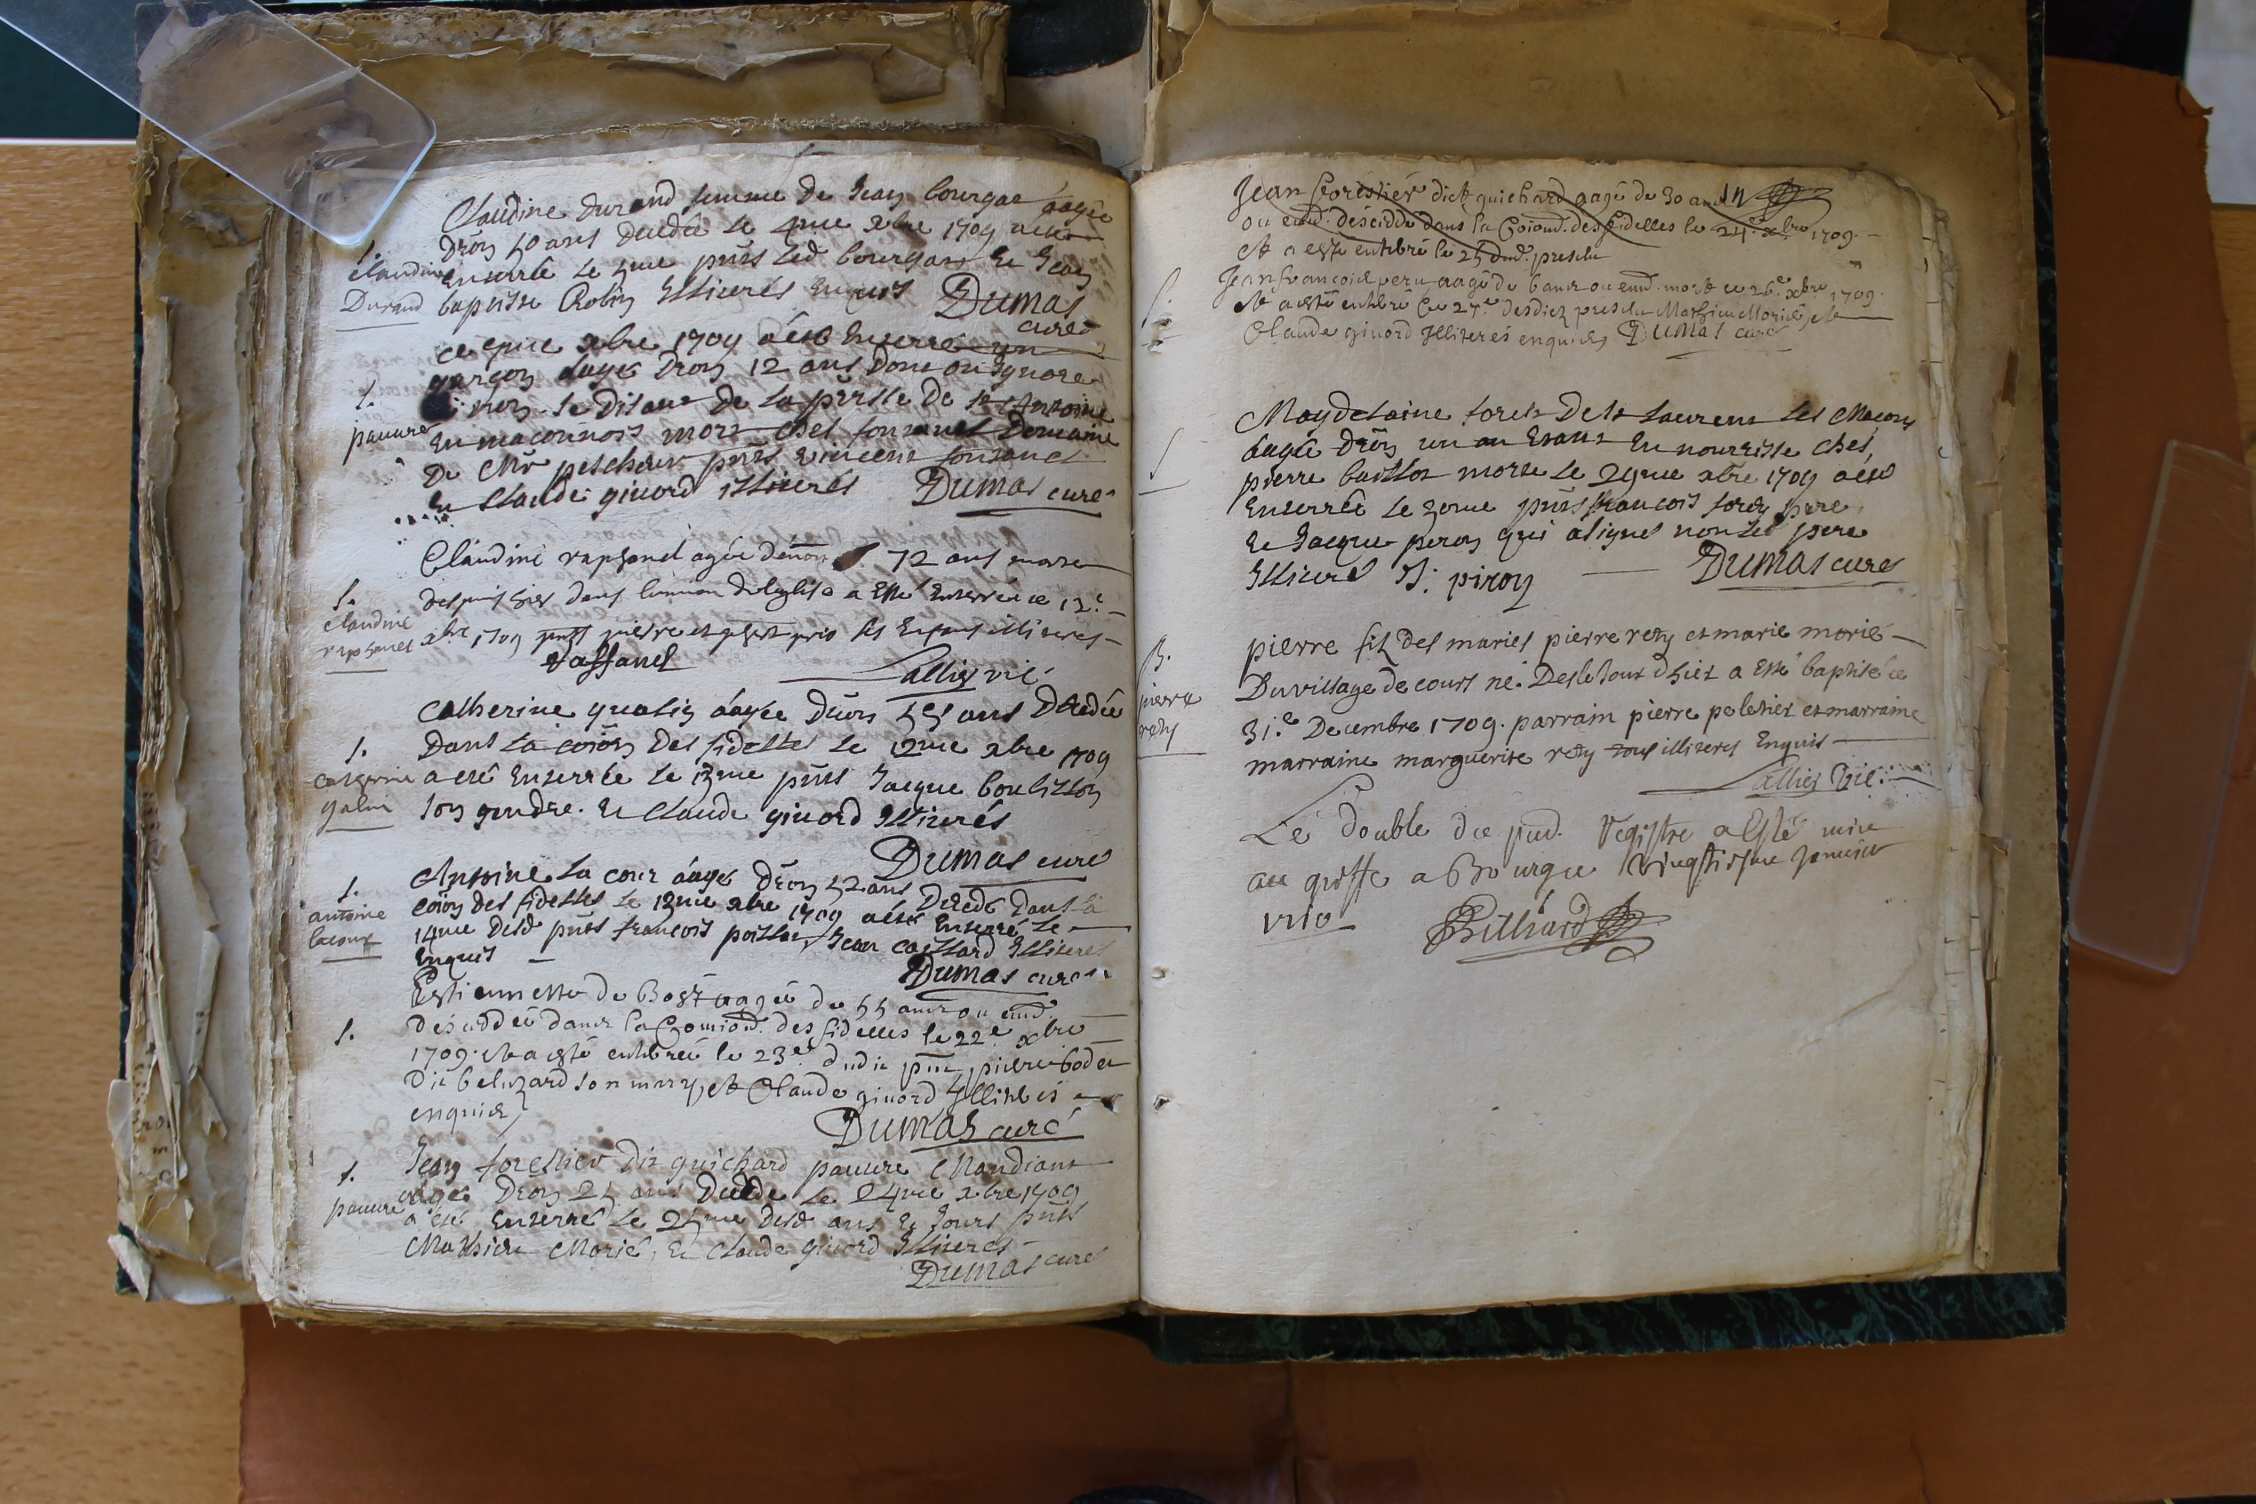 Claudine durand femme de Jean bourgat aagée
Dron 50 ans decedée le 4me xbre 1709 a esté
Enterrée le 5me pnts led bourgat et Jean
baptiste Robin Illiterés Enquis Dumas
curé
S.
Claudine
Durand
ce 9me xbre 1709 a esté Enterré un
garçon aagé Dron 12 ans Dont on Ignore
nom se Disant de la prsse De st Antoine
En maconnois mort ches fontanel Domaine
De Mr pescheur pnts vincent fontanel
et Claude givord illiterés Dumas curé
S.
pauure
Claudine raphanel agée dénon 72 ans morte
despuis hier dans lunion de leglise a Esté Enterrée ce 12e
xbre 1709 pnts pierre et ses Enfans illiteres
raffanel Lallier vic
S.
Claudine
raphanel
Catherine gualin aagée Duon 55 ans Decedée
Dans la coion Des fidelles le 12me xbre 1709
a esté Enterrée le 13me pnts Jacque bouillon
son gendre. et Claude givord Illiterés
Dumas curé
S.
Catherine
galin
Antoine La cour aagé Dron 52 ans Decedé Dans la
coion des fidelles le 13me xbre 1709 a esté Enterré le
14me Desd pnts françois poillon, Jean caillard Illiterés
Enquis
Dumas curé
S.
antoine
lacour
Estiennette de Bost aagée de 55 ans ou end
desceddée dans la Comiond. des fidelles le 22e xbre
1709. et a esté enterrée le 23e dudit pnt pierre bodet
dit beluzard son mary et Claude givord Illiterés
enquis
Dumas curé
S.
Jean forestier dit guichard pauure Mandiant
aagé Dron 25 ans Decede le 24me xbre 1709
a esté Enterré le 25me Desd ans et Jours pnts
Mathieu Morié, et Claude givord Illiterés
Dumas curé
S.
pauure
Jean forestier dict guichard aagé de 30 ans
ou end. desceddé dans la Coiond. des fidelles le 24e xbre 1709.
et a esté entérré le 25 dud. present
Jean françois peru aagé de 6 ans ou end. mort ce 26e xbre 1709.
et a esté entérré le 27e desdict present Mathieu Morié, et
Claude givord Illiterés enquis Dumas curé
S.
Magdelaine forest De st Laurens les Macon
aagée Dron un an Estant En nourrisse chés
pierre baillot morte le 29me xbre 1709 a esté
Enterrée le 30me pnts francois forest pere
et Jacque peron qui a signé non led pere
Illiteré J: piron Dumas curé
S
pierre fils des mariés pierre rety et marie morié
Du village de cours né. Des le Jour d'hier a Esté baptisé ce
31.e Decembre 1709. parrain pierre peletier et marraine
marraine marguerite rety tous illiteres Enquis
Lallier Vic.
B.
pierre
rety
Le double du pnd. registre a Esté mis
au greffe a Bourgue vingtsisme Janvier
Billiard